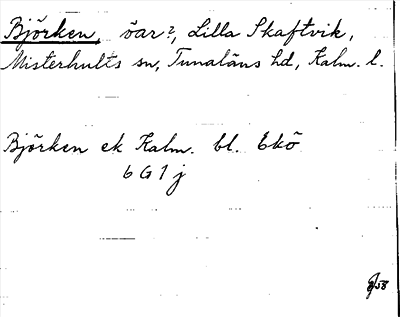 Björken, öar?, Lilla Skaftvik,
Misterhults sn, Tunaläns hd, Kalm. l.
Björken ek Kalm. bl. Ekö
6 G 1 j
58